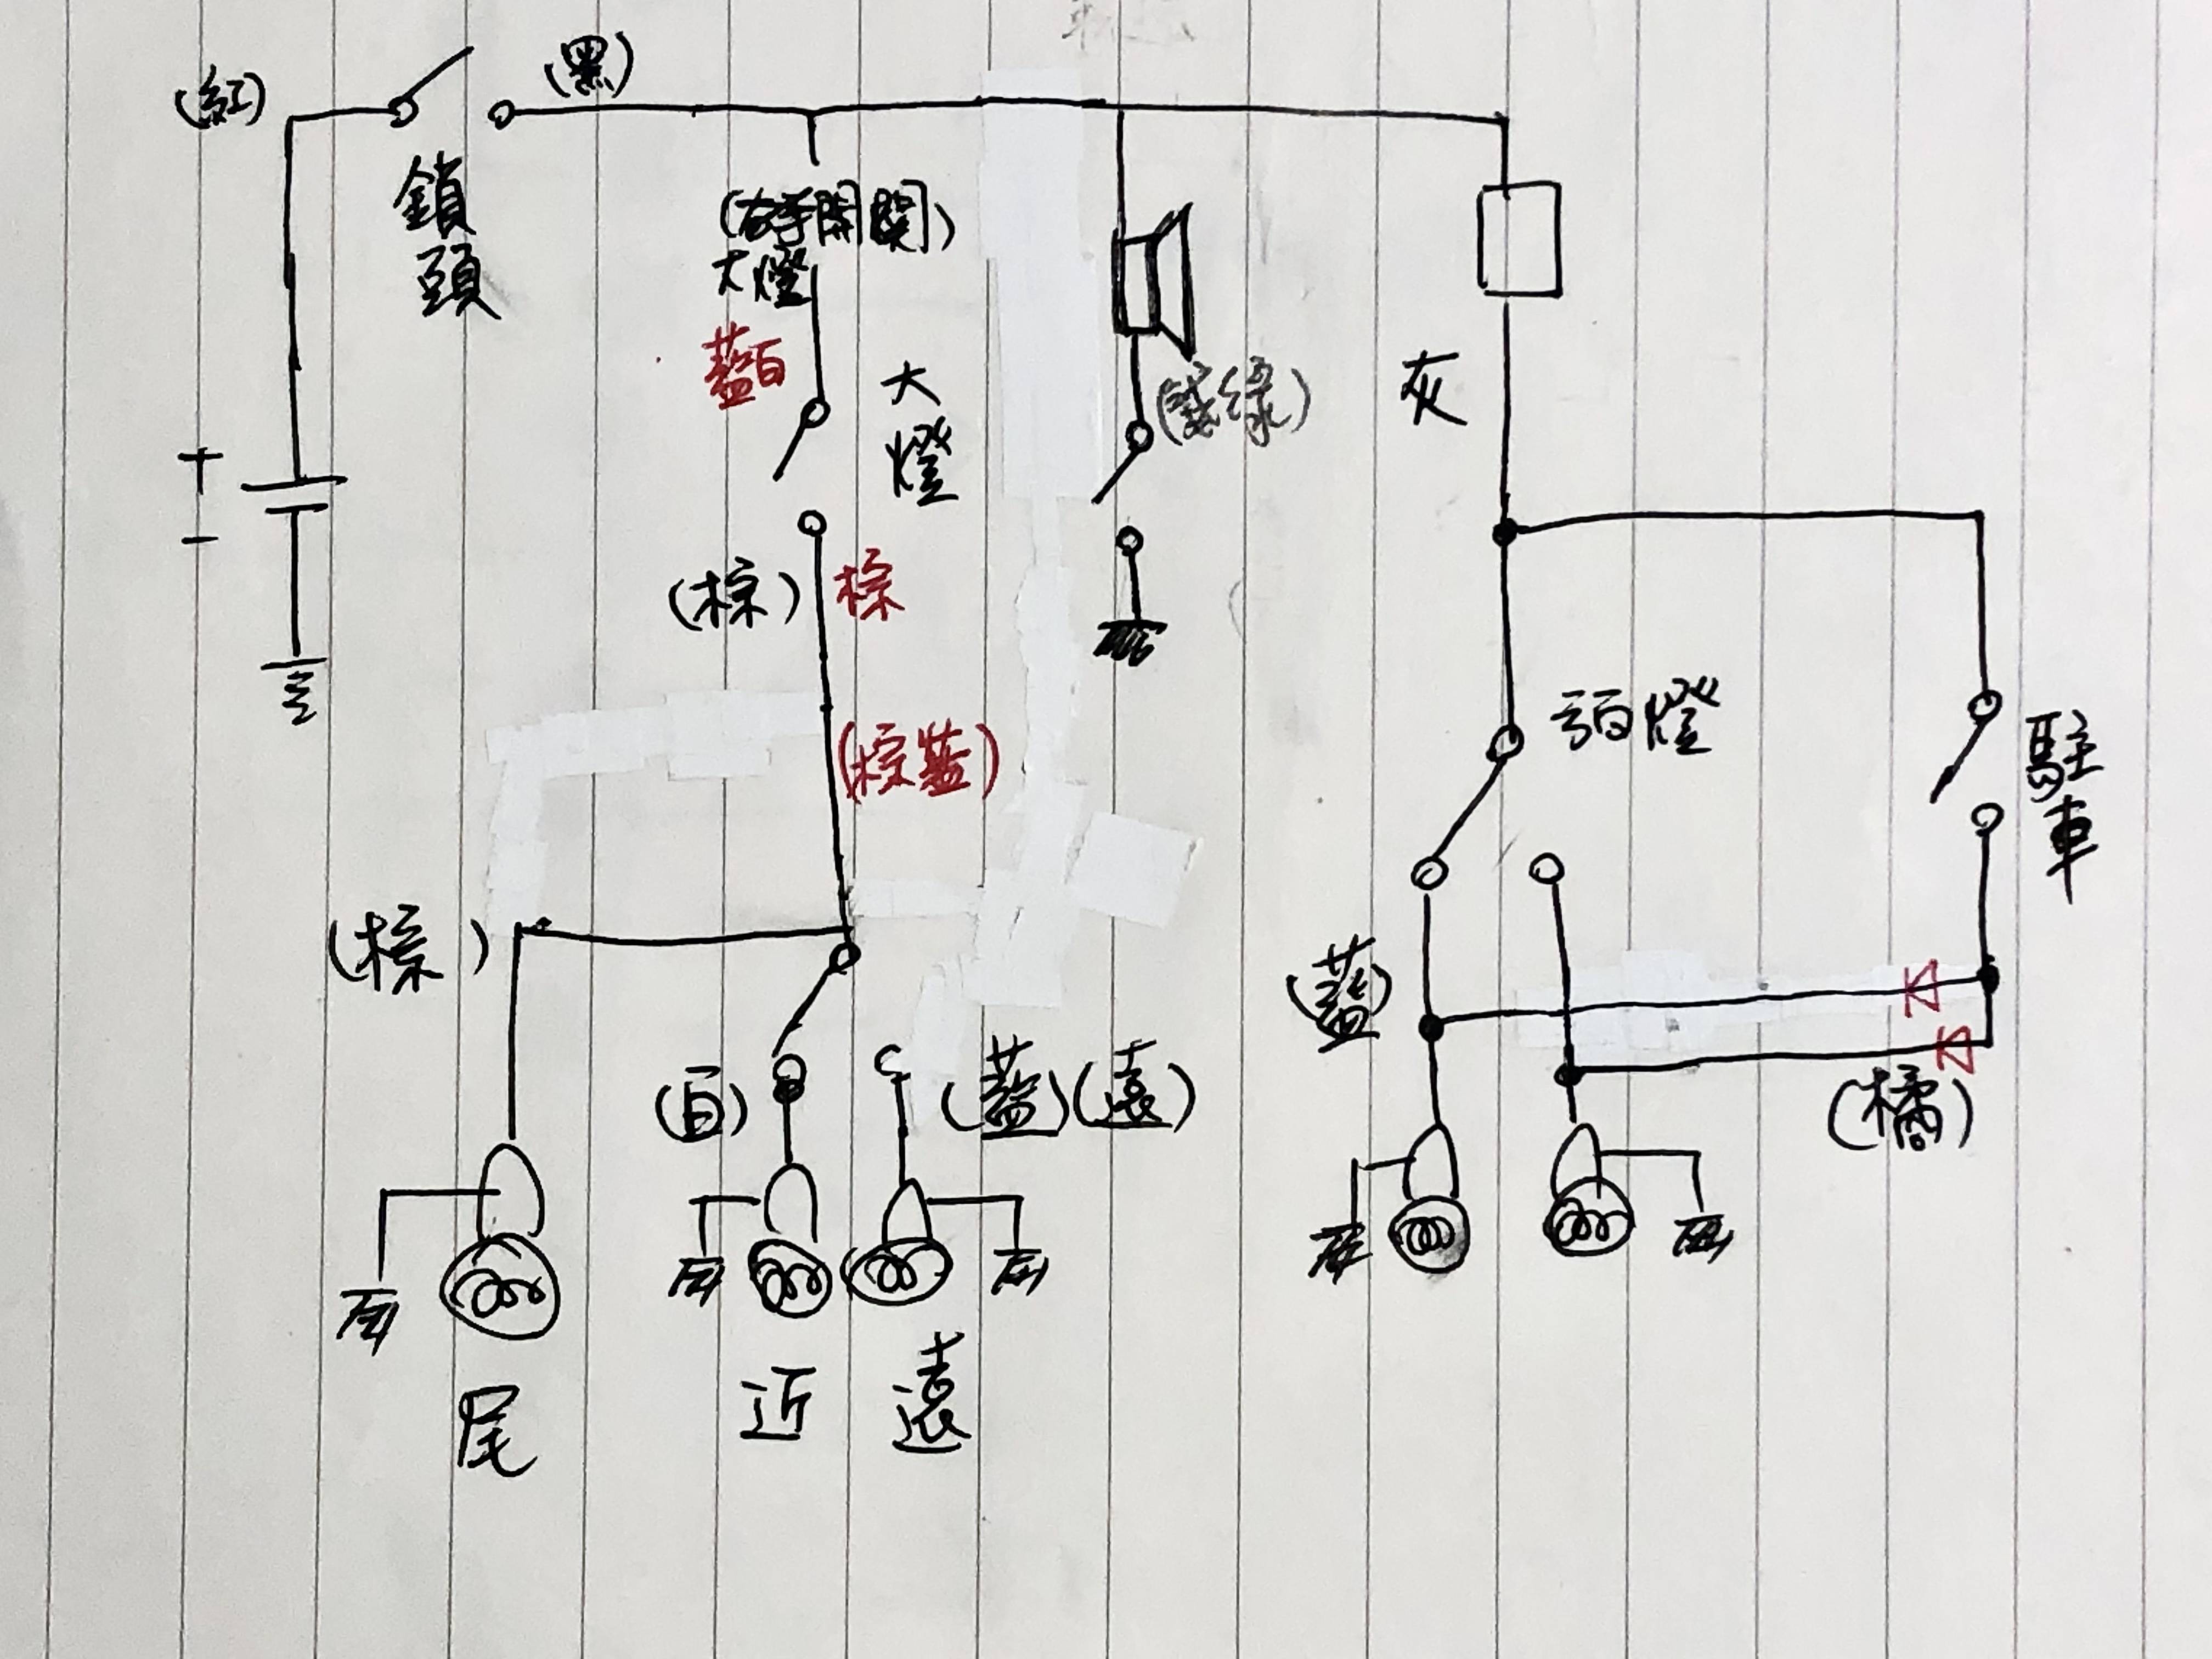 (紅)
(黑)
鎖頭
+
-
(右手開関)
大燈
藍白
大燈
灰
(棕)
棕
(棕藍)
駐車
(棕)
(白)
(藍)(遠)
(藍)
(橘)
尾
近
遠